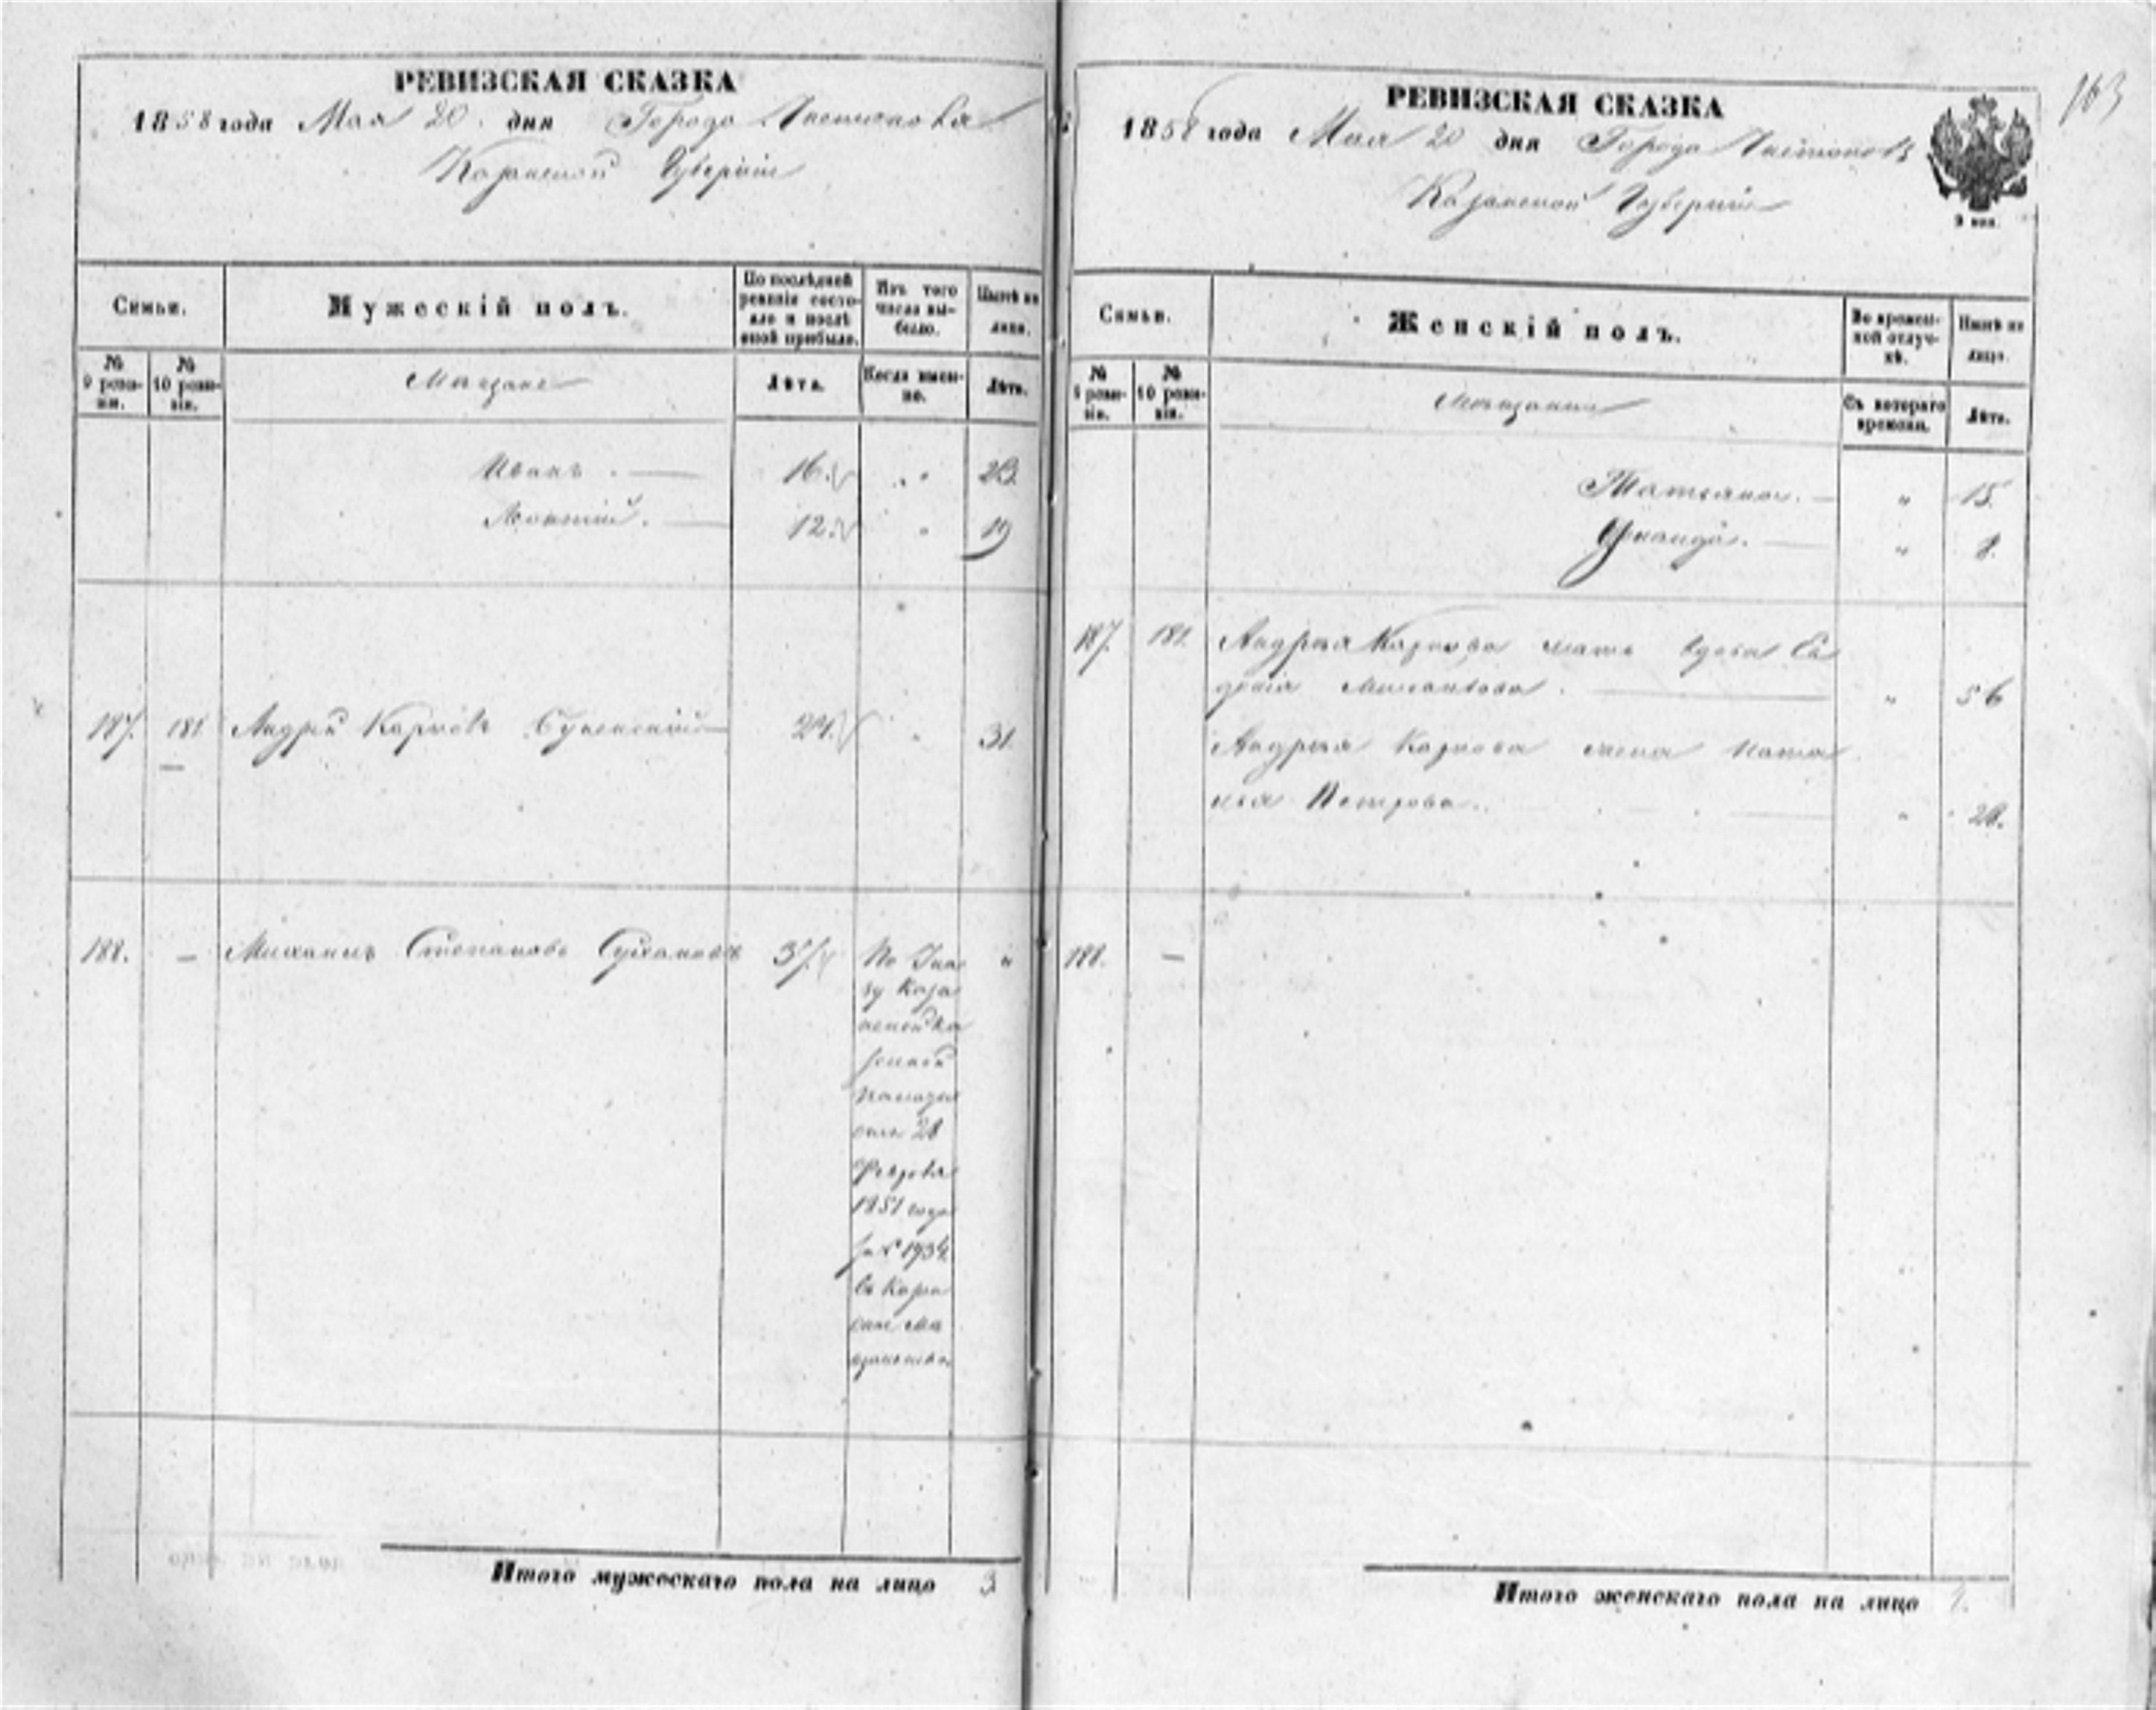 РЕВИЗСКАЯ СКАЗКА
1858 года Мая 20 дня Города Чистополя
Казанской Губерніи
Семьи.
Мужескій полъ.
По послѣдней ревизіи состояло и послѣ оной прибыло.
Изъ того числа выбыло.
Нынѣ на лицо.
№ 9 ревизіи.
№ 10 ревизіи.
Мѣщане
Лѣта.
Когда именно.
Лѣта.
Иванъ. 16. " 23.
12. " 19
187. 181 Андрей Карповъ 24. " 31.
188. — Михаилъ Степановъ Сухановъ 37. "
По Ука
зу Каза
нской Ка
зенной
Палаты
отъ 28
Февраля
1851 года
за № 1934.
въ Каза
ское мѣ
щанство.
Итого мужескаго пола на лицо 3
163
РЕВИЗСКАЯ СКАЗКА
1858 года Мая 20 дня Города Чистополя
Казанской Губерніи
Семьи.
Женскій полъ.
Во временной отлучкѣ.
Нынѣ на лицо.
№ 9 ревизіи.
№ 10 ревизіи.
Мѣщанки
Съ котораго времени.
Лѣта.
Татьяна. " 15.
" 8.
187. 181. Андрея Карпова мать вдова Ев
" 56
Андрея Карпова жена Ната
лья Петрова. " 28.
188. —
Итого женскаго пола на лицо